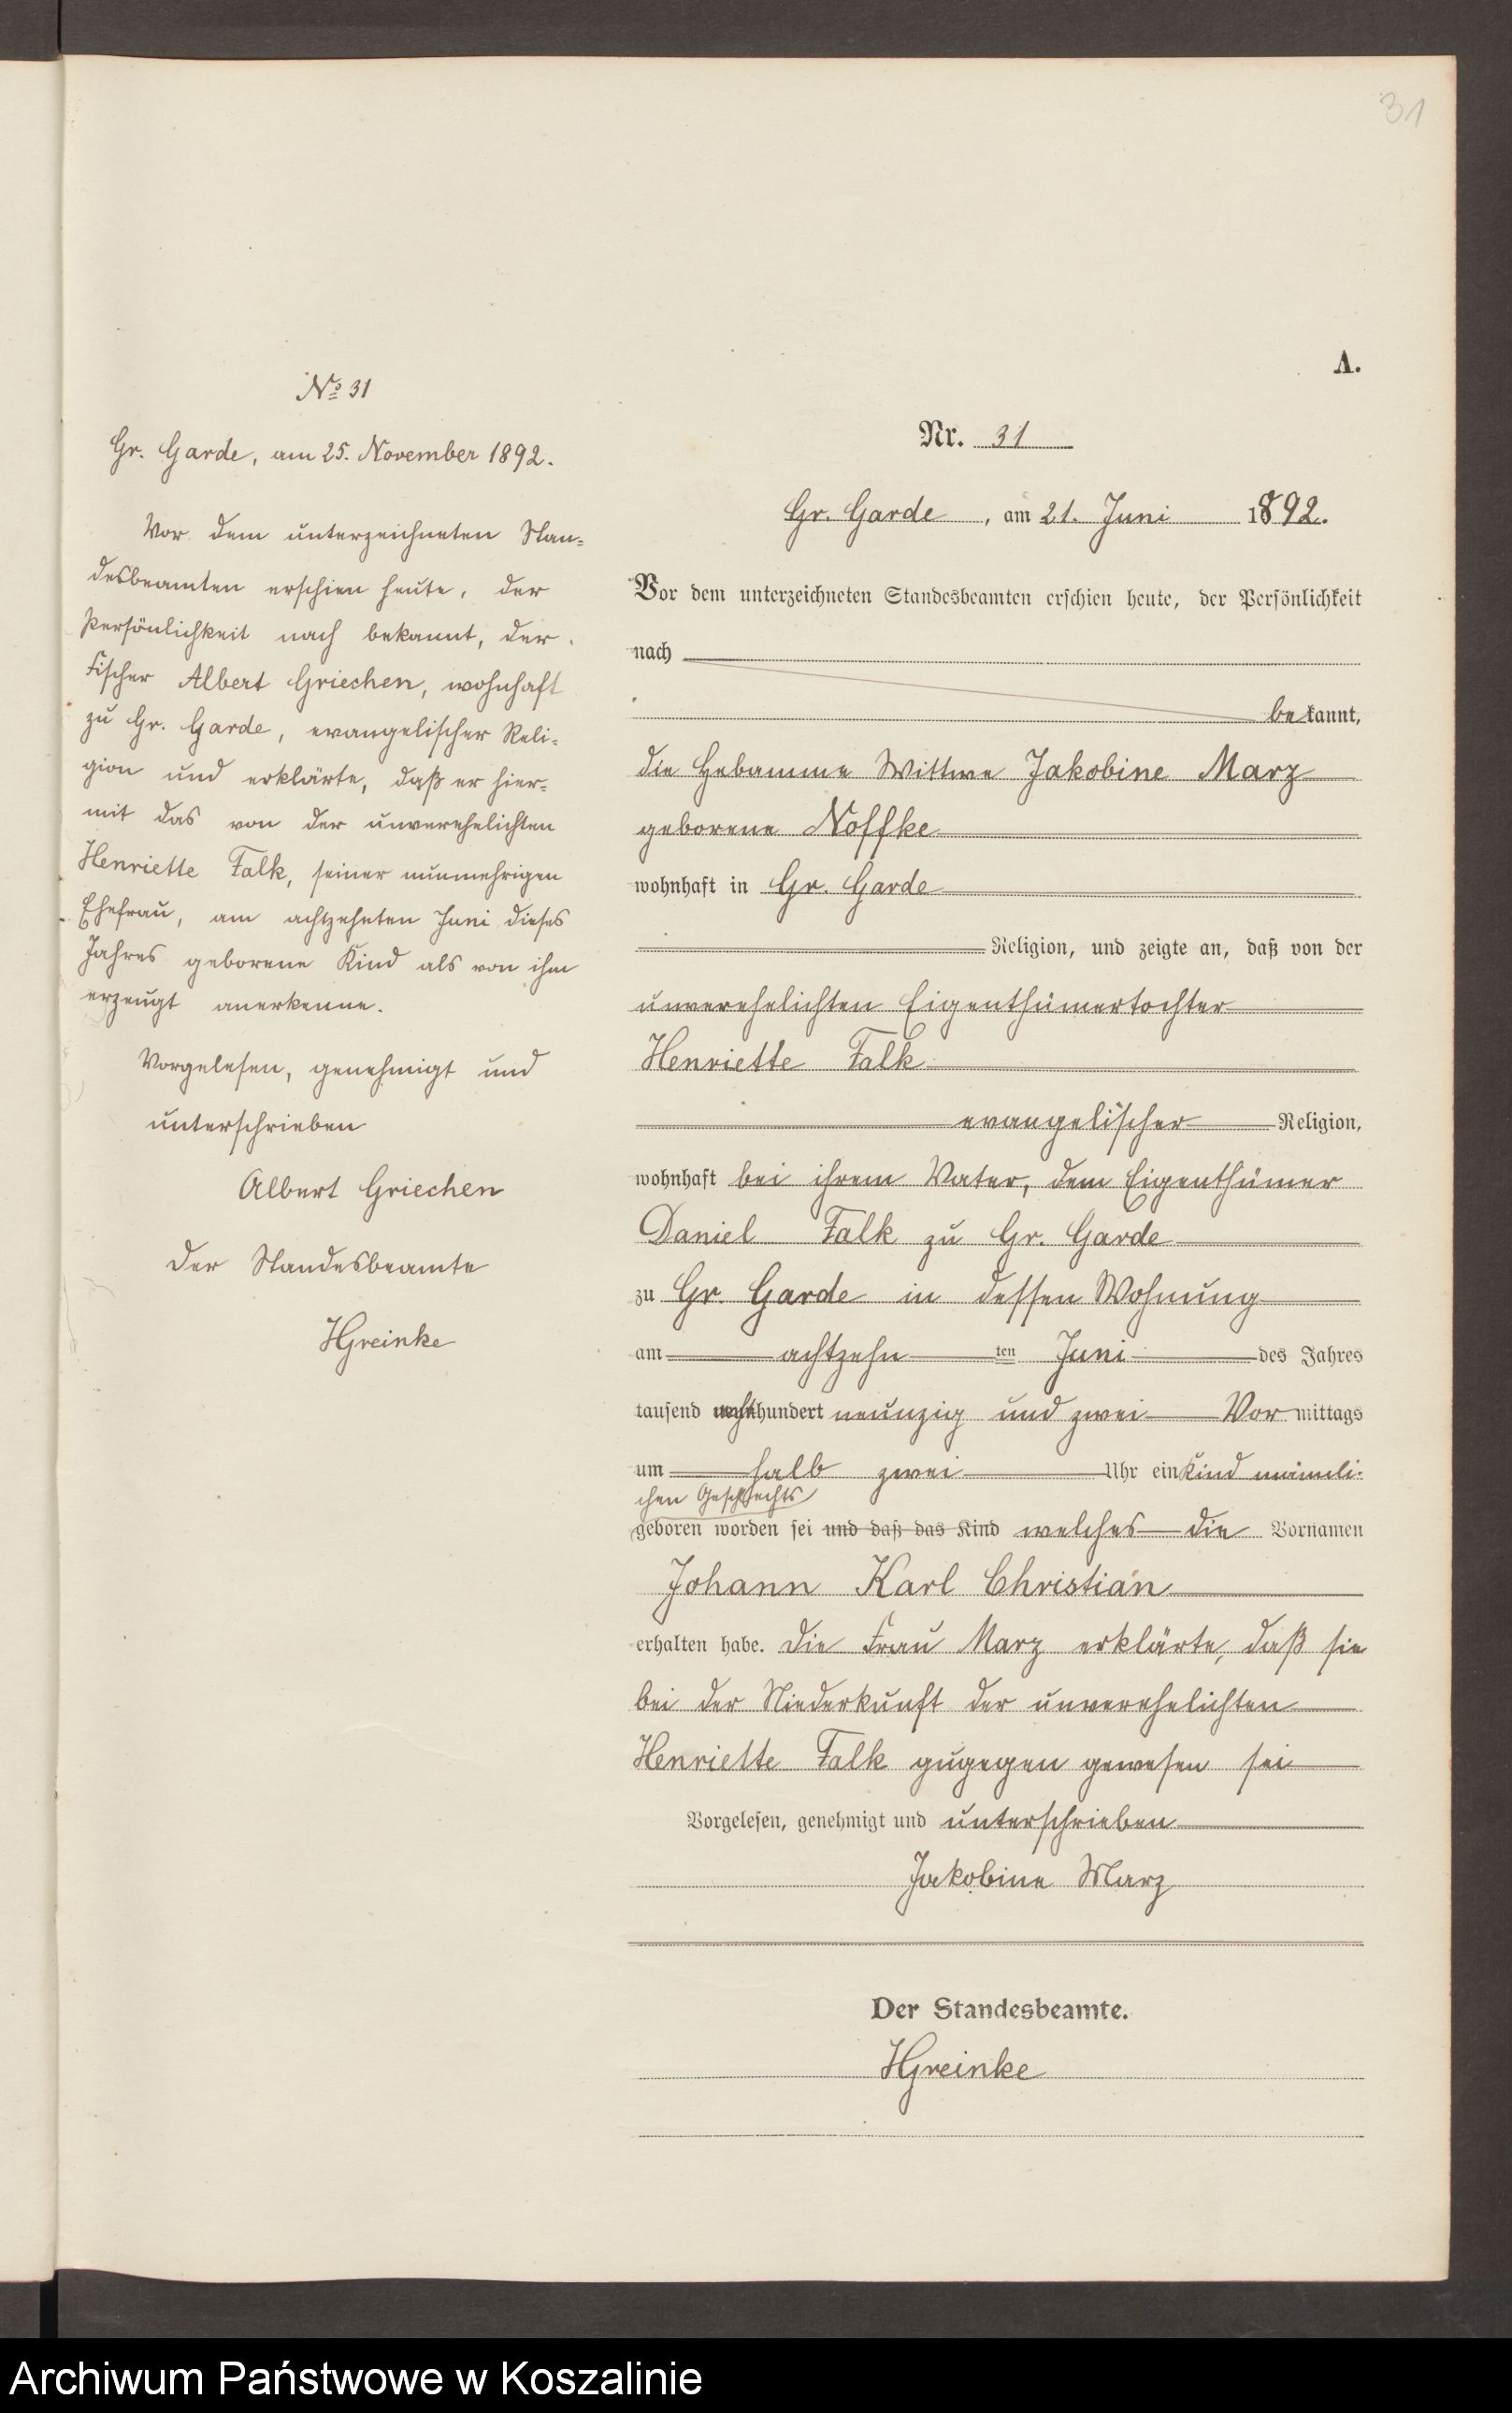 31
A.
№ 31
Gr. Garde, am 25. November 1892.
Vor dem unterzeichneten Stan=
desbeamten erschien heute, der
Persönlichkeit nach bekannt, der
Fischer Albert Griechen, wohnhaft
zu Gr. Garde, evangelischer Reli=
gion und erklärte, daß er hier=
mit das von der unverehelichten
Henriette Falk, seiner nunmehrigen
Ehefrau, am achtzehnten Juni dieses
Jahres geborene Kind als von ihm
erzeugt anerkenne.
Vorgelesen, genehmigt und
unterschrieben
Albert Griechen
Der Standesbeamte
HGreinke
Nr. 31
Gr. Garde, am 21. Juni 1892.
Vor dem unterzeichneten Standesbeamten erschien heute, der Persönlichkeit
nach
bekannt,
die Hebamme Wittwe Jakobine Marz
geborene Noffke
wohnhaft in Gr. Garde
Religion, und zeigte an, daß von der
unverehelichten Eigenthümertochter
Henriette Falk
evangelischer Religion,
wohnhaft bei ihrem Vater, dem Eigenthümer
Daniel Falk zu Gr. Garde
zu Gr. Garde in dessen Wohnung
am achtzehn ten Juni des Jahres
tausend achthundert neunzig und zwei Vormittags
um halb zwei Uhr ein Kind männli-
chen Geschlechts
geboren worden sei und daß das Kind welches die Vornamen
Johann Karl Christian
erhalten habe. Die Frau Marz erklärte, daß sie
bei der Niederkunft der unverehelichten
Henriette Falk zugegen gewesen sei
Vorgelesen, genehmigt und unterschrieben
Jakobine Marz
Der Standesbeamte.
HGreinke
Archiwum Państwowe w Koszalinie